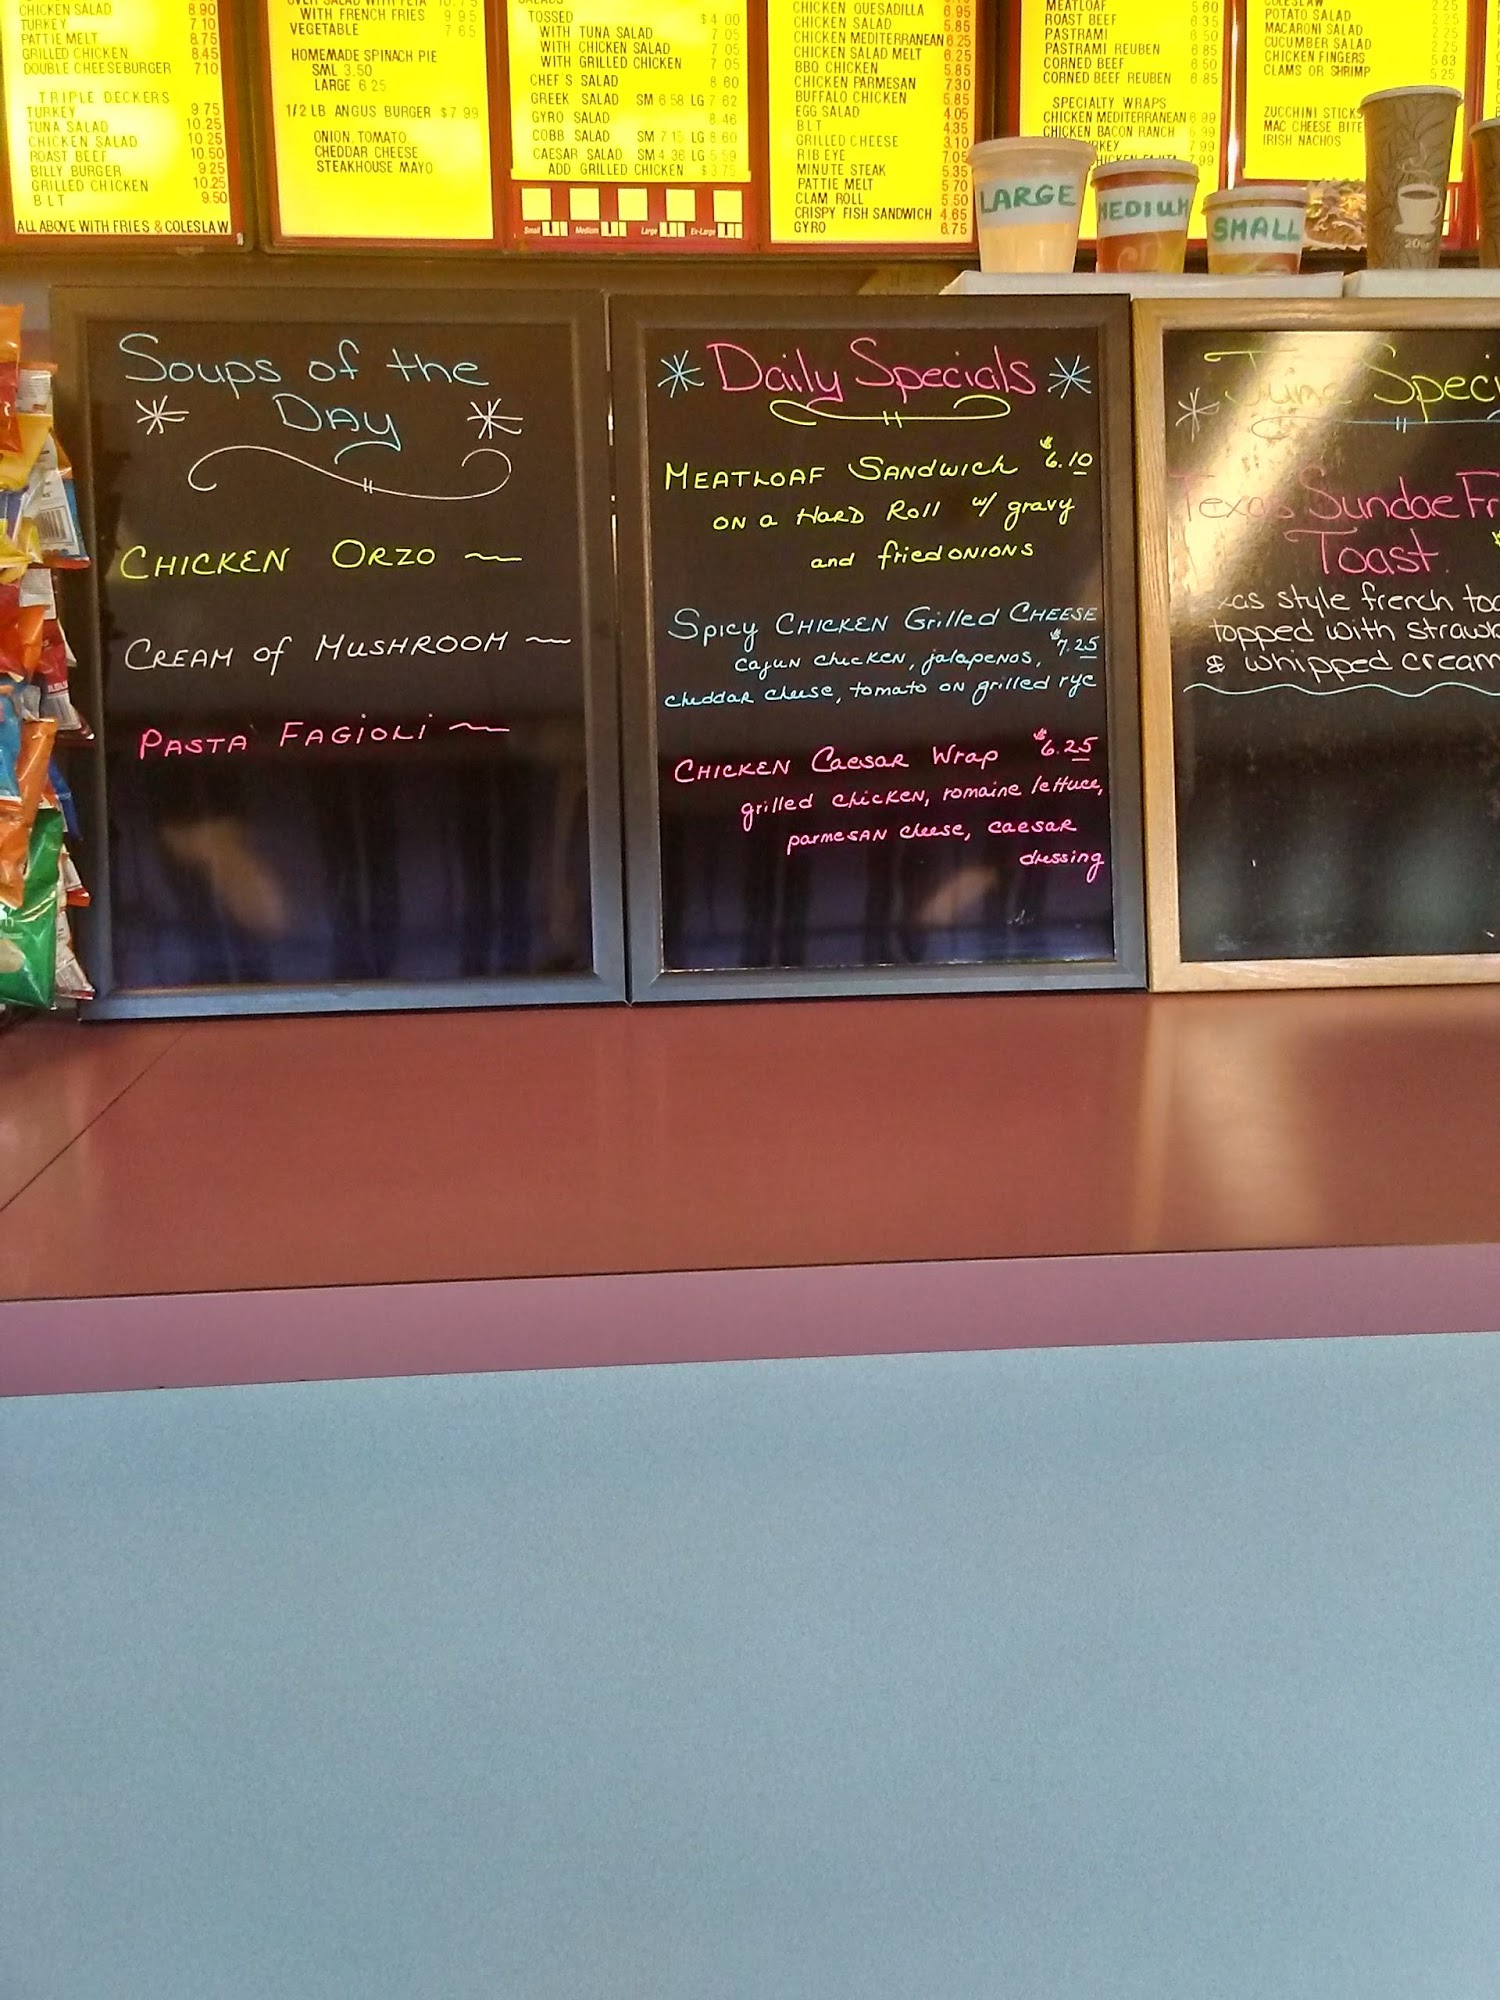 CHICKEN SALAD 8.90
TURKEY 7.10
PATTIE MELT 8.75
GRILLED CHICKEN 8.45
DOUBLE CHEESEBURGER 7.10
TRIPLE DECKERS
TURKEY 9.75
TUNA SALAD 10.25
CHICKEN SALAD 10.25
ROAST BEEF 10.50
BILLY BURGER 9.25
GRILLED CHICKEN 10.25
BLT 9.50
ALL ABOVE WITH FRIES & COLESLAW
WITH FRENCH FRIES 9 95
VEGETABLE 7 65
HOMEMADE SPINACH PIE
SML 3.50
LARGE 6 25
1/2 LB ANGUS BURGER $7 99
ONION, TOMATO,
CHEDDAR CHEESE
STEAKHOUSE MAYO
TOSSED $4 00
WITH TUNA SALAD 7 05
WITH CHICKEN SALAD 7 05
WITH GRILLED CHICKEN 7 05
CHEF'S SALAD 8 60
GREEK SALAD SM 6 58 LG 7 62
GYRO SALAD 8.46
COBB SALAD SM 7 15 LG 8 60
CAESAR SALAD SM 4 36 LG 5 59
ADD GRILLED CHICKEN $3.75
Small Medium Large Ex-Large
CHICKEN QUESADILLA 6.95
CHICKEN SALAD 5.85
CHICKEN MEDITERRANEAN 6.25
CHICKEN SALAD MELT 6.25
BBQ CHICKEN 5.85
CHICKEN PARMESAN 7.30
BUFFALO CHICKEN 5.85
EGG SALAD 4.05
BLT 4.35
GRILLED CHEESE 3.10
RIB EYE 7.05
MINUTE STEAK 5.35
PATTIE MELT 5 70
CLAM ROLL 5.50
CRISPY FISH SANDWICH 4.65
GYRO 6.75
MEATLOAF 5 60
ROAST BEEF 6 35
PASTRAMI 6 50
PASTRAMI REUBEN 6 85
CORNED BEEF 6 50
CORNED BEEF REUBEN 6 85
SPECIALTY WRAPS
CHICKEN MEDITERRANEAN 6 99
CHICKEN BACON RANCH 6.99
7.99
7.99
COLESLAW 2 25
POTATO SALAD 2 25
MACARONI SALAD 2 25
CUCUMBER SALAD 2 25
CHICKEN FINGERS 5 63
CLAMS OR SHRIMP 5 25
ZUCCHINI STICKS
MAC CHEESE BITE
IRISH NACHOS
LARGE
MEDIUM
SMALL
Soups of the
DAY
CHICKEN ORZO
CREAM of MUSHROOM
PASTA FAGIOLI
Daily Specials
MEATLOAF SANDWICH $6.10
ON a HARD Roll w/ gravy
and fried ONIONS
Spicy CHICKEN Grilled CHEESE
cajun chicken, jalapenos, $7.25
cheddar cheese, tomato on grilled rye
CHICKEN Caesar Wrap $6.25
grilled chicken, romaine lettuce,
parmesan cheese, caesar
dressing
June Speci
Texas Sundae Fr
Toast
xas style french toa
topped with strawb
& whipped cream